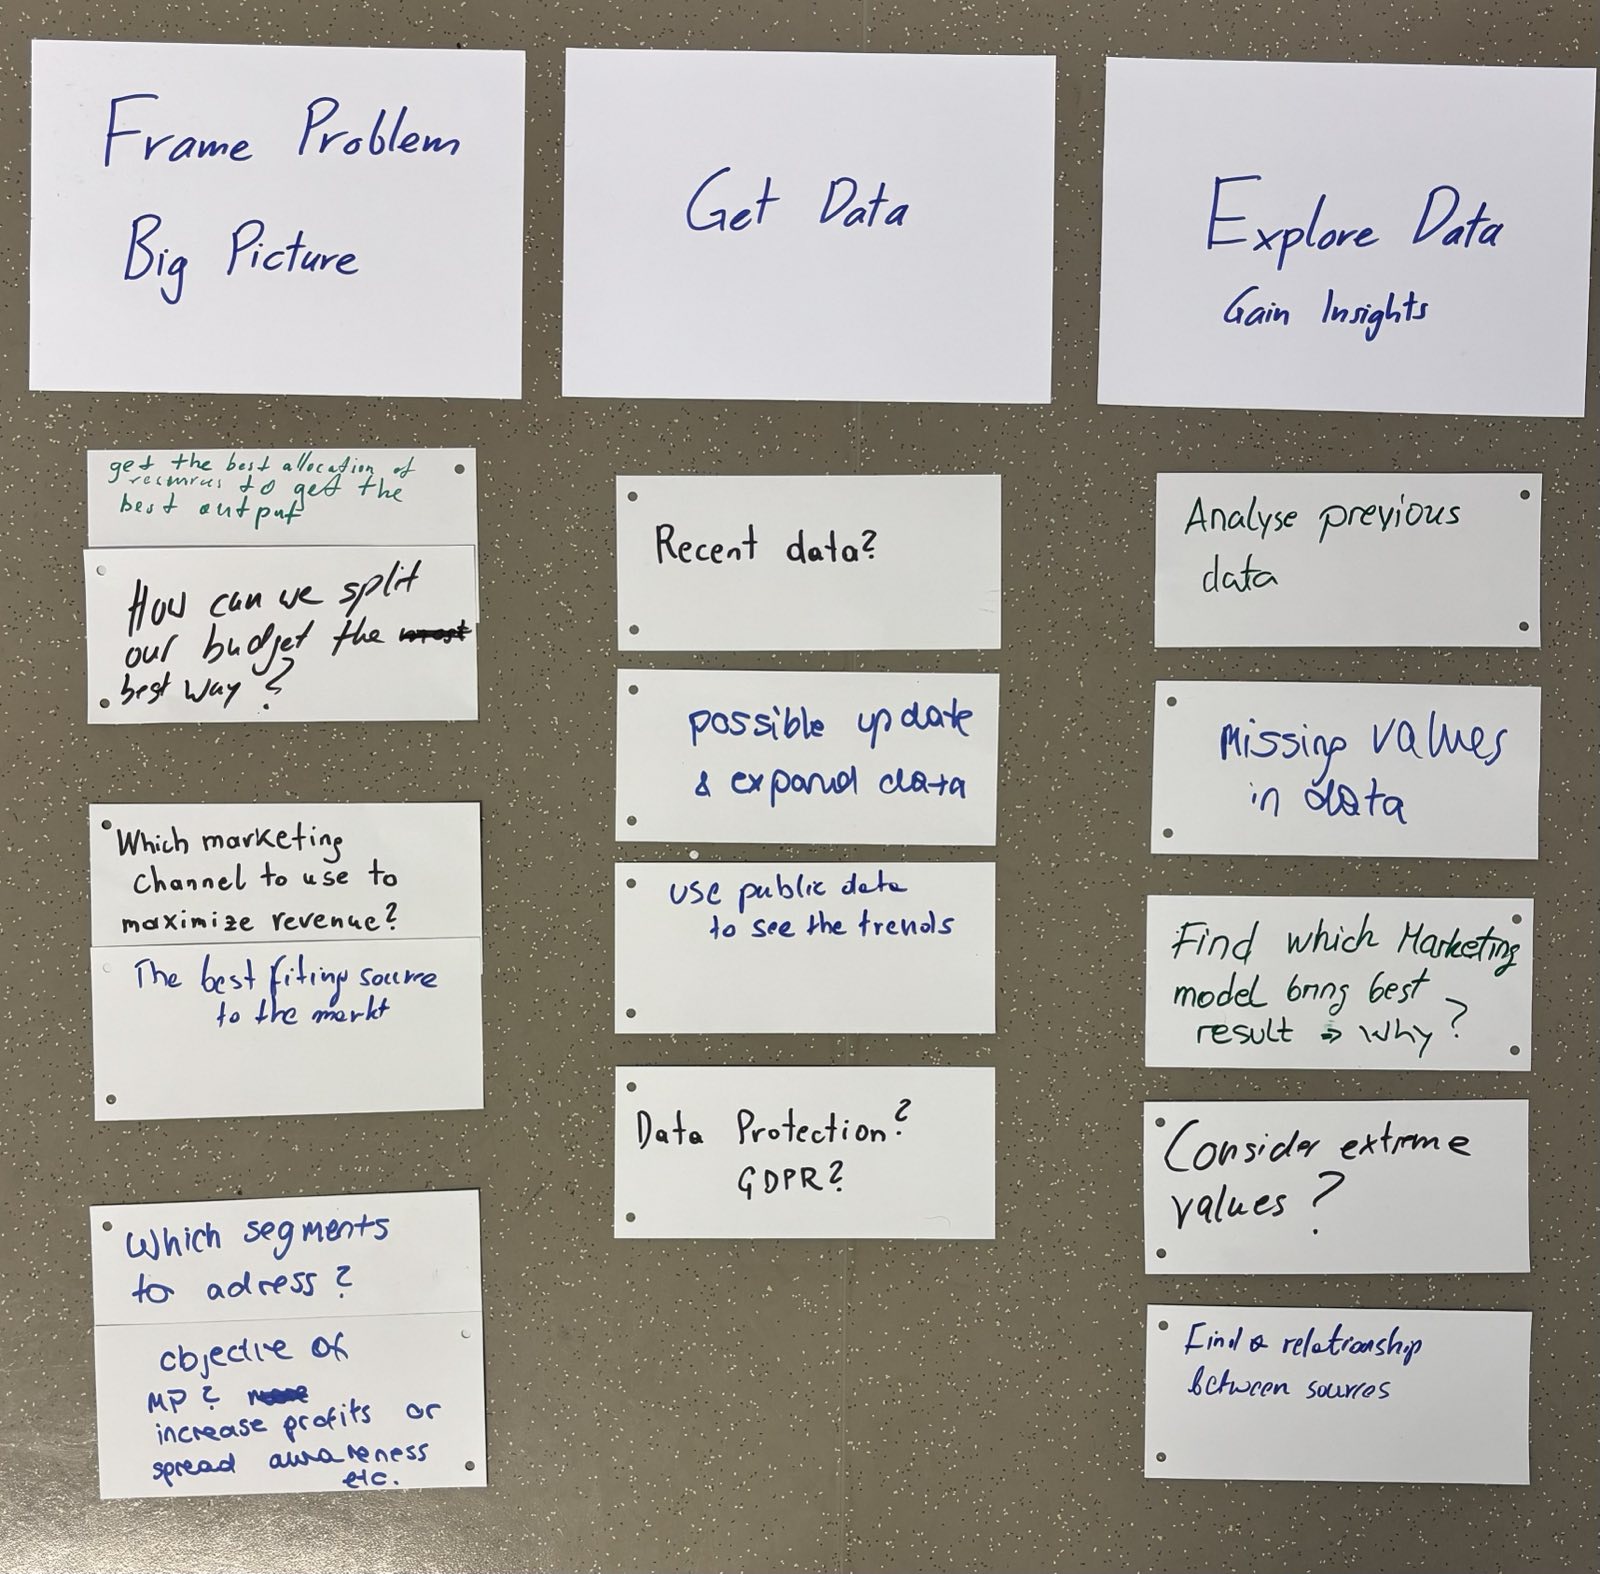 Frame Problem
Big Picture
get the best allocation of
to get the
best output
How can we split
our budget the
best way?
Which marketing
channel to use to
maximize revenue?
The best fiting sourre
to the markt
Which segments
to adress?
objective of
MP?
increase profits or
spread awareness
etc.
Get Data
Recent data?
possible update
& expand data
use public data
to see the trends
Data Protection?
GDPR?
Explore Data
Gain Insights
Analyse previous
data
Missing values
in data
Find which Marketing
model bring best
result ⇒ why?
Consider extreme
values?
Find a relationship
between sources